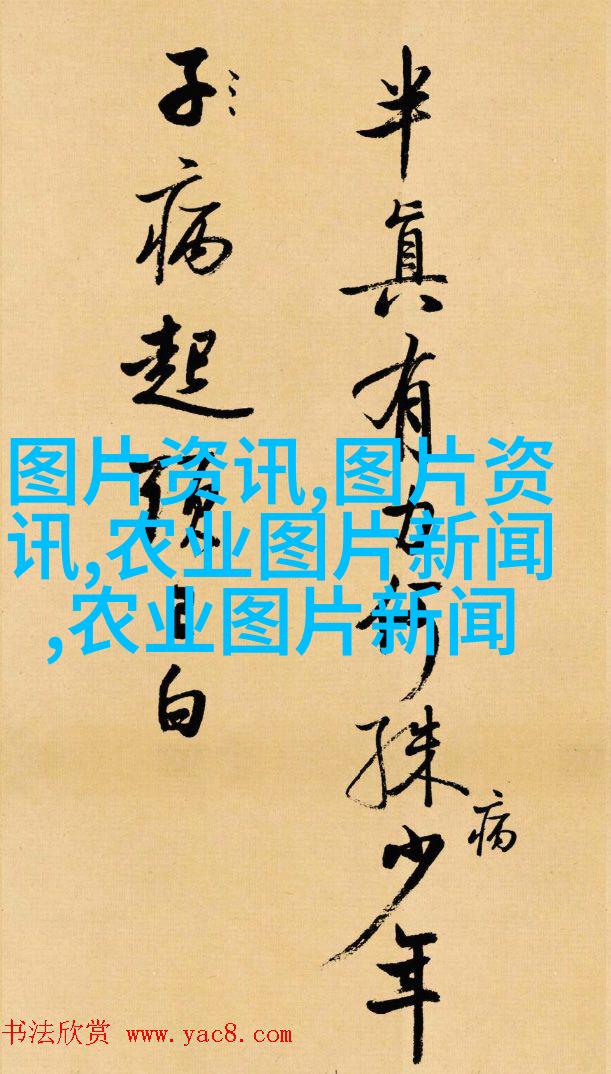 半眞有力何殊病少年
子病起頭已白
图片资讯,图片资
讯,农业图片新闻
,农业图片新闻
书法欣赏 www.yac8.com